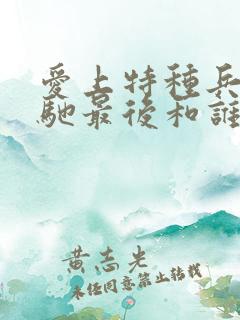 愛上特種兵
馳最後和誰
黃志光
未任同意禁止转载